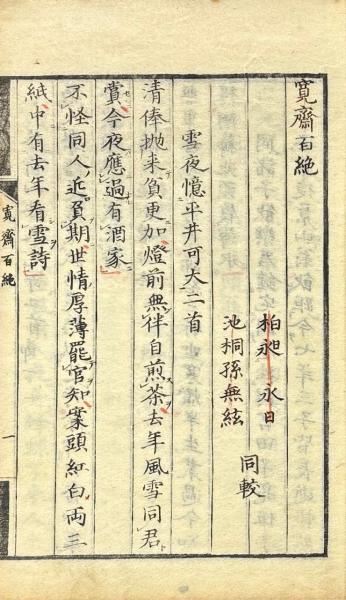 寛齋百絶
柏昶 永日
池桐孫無絃
同較
雪夜憶平井可大二首
清俸抛来貧更加燈前無伴自煎茶去年風雪同君
賞今夜應過有酒家
不怪同人近負期世情厚薄罷官知案頭紅白両三
紙中有去年看雪詩
寛齋百絶
一